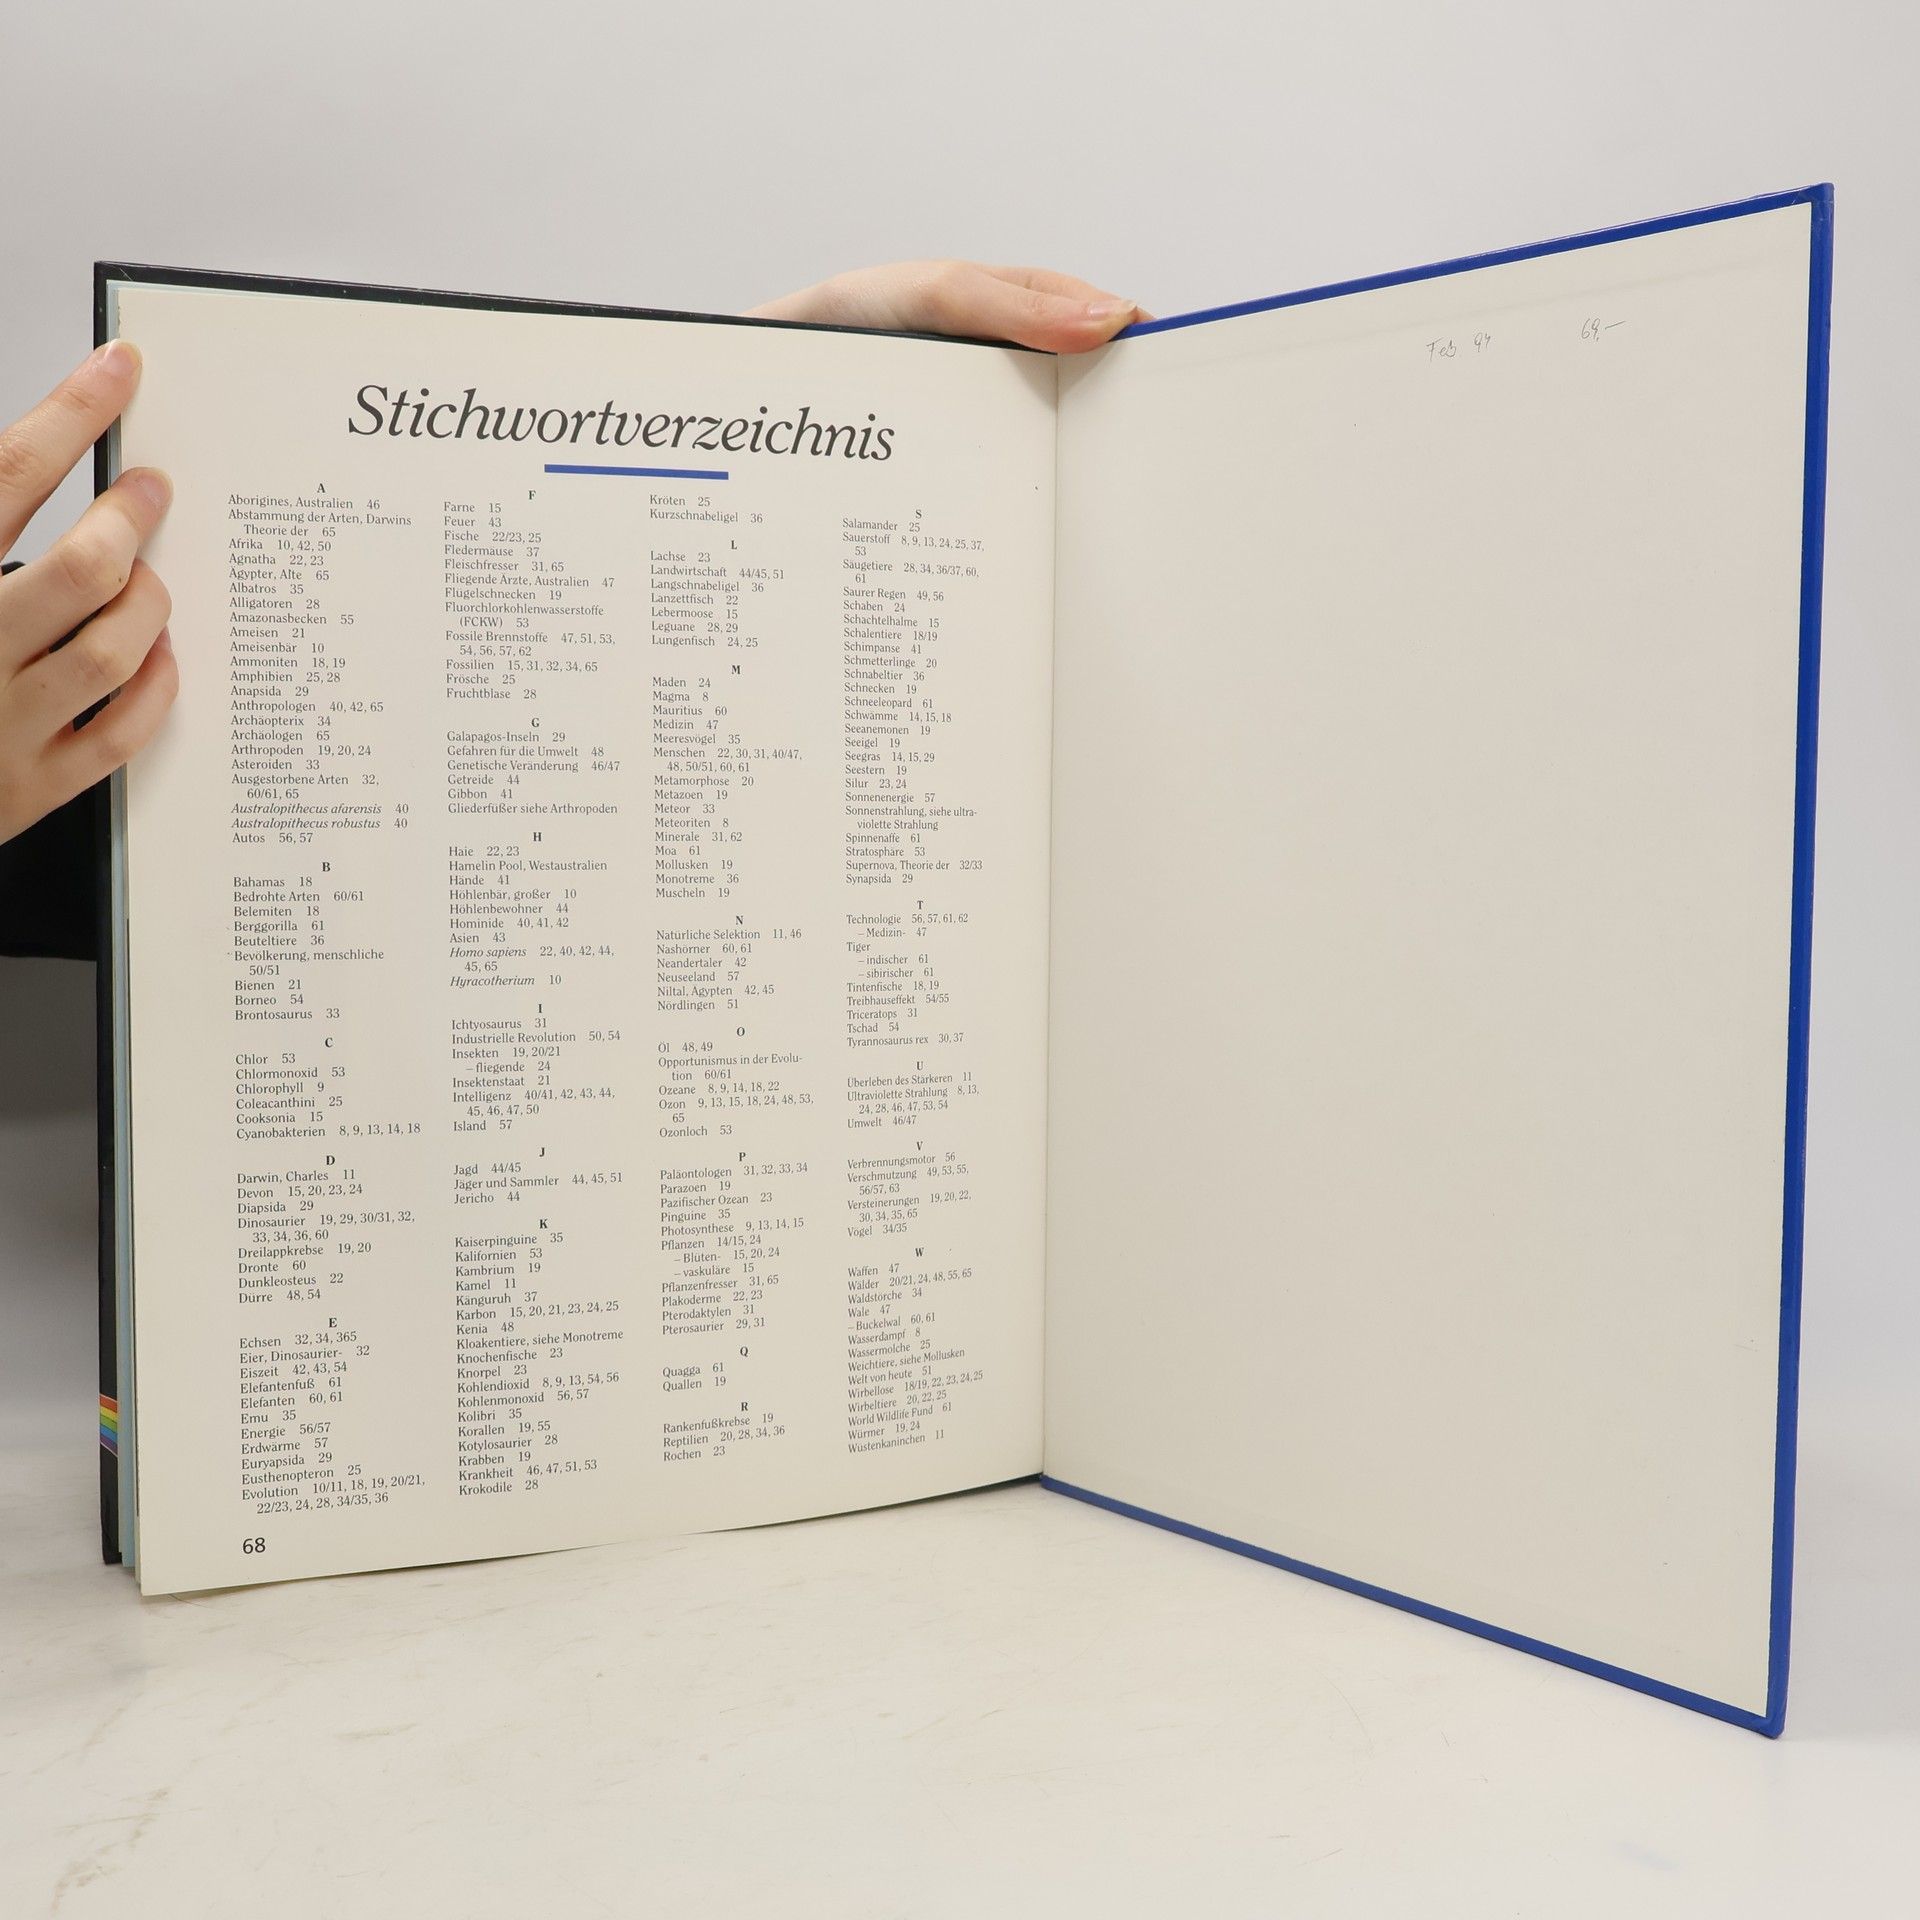 Stichwortverzeichnis
A
Aborigines, Australien 46
Abstammung der Arten, Darwins
Theorie der 65
Afrika 10, 42, 50
Agnatha 22, 23
Ägypter, Alte 65
Albatros 35
Alligatoren 28
Amazonasbecken 55
Ameisen 21
Ameisenbär 10
Ammoniten 18, 19
Amphibien 25, 28
Anapsida 29
Anthropologen 40, 42, 65
Archäopterix 34
Archäologen 65
Arthropoden 19, 20, 24
Asteroiden 33
Ausgestorbene Arten 32,
60/61, 65
Australopithecus afarensis 40
Australopithecus robustus 40
Autos 56, 57
B
Bahamas 18
Bedrohte Arten 60/61
Belemiten 18
Berggorilla 61
Beuteltiere 36
Bevölkerung, menschliche
50/51
Bienen 21
Borneo 54
Brontosaurus 33
C
Chlor 53
Chlormonoxid 53
Chlorophyll 9
Coleacanthini 25
Cooksonia 15
Cyanobakterien 8, 9, 13, 14, 18
D
Darwin, Charles 11
Devon 15, 20, 23, 24
Diapsida 29
Dinosaurier 19, 29, 30/31, 32,
33, 34, 36, 60
Dreilappkrebse 19, 20
Dronte 60
Dunkleosteus 22
Dürre 48, 54
E
Echsen 32, 34, 365
Eier, Dinosaurier- 32
Eiszeit 42, 43, 54
Elefantenfuß 61
Elefanten 60, 61
Emu 35
Energie 56/57
Erdwärme 57
Euryapsida 29
Eusthenopteron 25
Evolution 10/11, 18, 19, 20/21,
22/23, 24, 28, 34/35, 36
F
Farne 15
Feuer 43
Fische 22/23, 25
Fledermäuse 37
Fleischfresser 31, 65
Fliegende Ärzte, Australien 47
Flügelschnecken 19
Fluorchlorkohlenwasserstoffe
(FCKW) 53
Fossile Brennstoffe 47, 51, 53,
54, 56, 57, 62
Fossilien 15, 31, 32, 34, 65
Frösche 25
Fruchtblase 28
G
Galapagos-Inseln 29
Gefahren für die Umwelt 48
Genetische Veränderung 46/47
Getreide 44
Gibbon 41
Gliederfüßer siehe Arthropoden
H
Haie 22, 23
Hamelin Pool, Westaustralien
Hände 41
Höhlenbär, großer 10
Höhlenbewohner 44
Hominide 40, 41, 42
Asien 43
Homo sapiens 22, 40, 42, 44,
45, 65
Hyracotherium 10
I
Ichtyosaurus 31
Industrielle Revolution 50, 54
Insekten 19, 20/21
– fliegende 24
Insektenstaat 21
Intelligenz 40/41, 42, 43, 44,
45, 46, 47, 50
Island 57
J
Jagd 44/45
Jäger und Sammler 44, 45, 51
Jericho 44
K
Kaiserpinguine 35
Kalifornien 53
Kambrium 19
Kamel 11
Känguruh 37
Karbon 15, 20, 21, 23, 24, 25
Kenia 48
Kloakentiere, siehe Monotreme
Knochenfische 23
Knorpel 23
Kohlendioxid 8, 9, 13, 54, 56
Kohlenmonoxid 56, 57
Kolibri 35
Korallen 19, 55
Kotylosaurier 28
Krabben 19
Krankheit 46, 47, 51, 53
Krokodile 28
Kröten 25
Kurzschnabeligel 36
L
Lachse 23
Landwirtschaft 44/45, 51
Langschnabeligel 36
Lanzettfisch 22
Lebermoose 15
Leguane 28, 29
Lungenfisch 24, 25
M
Maden 24
Magma 8
Mauritius 60
Medizin 47
Meeresvögel 35
Menschen 22, 30, 31, 40/47,
48, 50/51, 60, 61
Metamorphose 20
Metazoen 19
Meteor 33
Meteoriten 8
Minerale 31, 62
Moa 61
Mollusken 19
Monotreme 36
Muscheln 19
N
Natürliche Selektion 11, 46
Nashörner 60, 61
Neandertaler 42
Neuseeland 57
Niltal, Ägypten 42, 45
Nördlingen 51
O
Öl 48, 49
Opportunismus in der Evolu-
tion 60/61
Ozeane 8, 9, 14, 18, 22
Ozon 9, 13, 15, 18, 24, 48, 53,
65
Ozonloch 53
P
Paläontologen 31, 32, 33, 34
Parazoen 19
Pazifischer Ozean 23
Pinguine 35
Photosynthese 9, 13, 14, 15
Pflanzen 14/15, 24
– Blüten- 15, 20, 24
– vaskuläre 15
Pflanzenfresser 31, 65
Plakoderme 22, 23
Pterodaktylen 31
Pterosaurier 29, 31
Q
Quagga 61
Quallen 19
R
Rankenfußkrebse 19
Reptilien 20, 28, 34, 36
Rochen 23
S
Salamander 25
Sauerstoff 8, 9, 13, 24, 25, 37,
53
Säugetiere 28, 34, 36/37, 60,
61
Saurer Regen 49, 56
Schaben 24
Schachtelhalme 15
Schalentiere 18/19
Schimpanse 41
Schmetterlinge 20
Schnabeltier 36
Schnecken 19
Schneeleopard 61
Schwämme 14, 15, 18
Seeanemonen 19
Seeigel 19
Seegras 14, 15, 29
Seestern 19
Silur 23, 24
Sonnenenergie 57
Sonnenstrahlung, siehe ultra-
violette Strahlung
Spinnenaffe 61
Stratosphäre 53
Supernova, Theorie der 32/33
Synapsida 29
T
Technologie 56, 57, 61, 62
– Medizin- 47
Tiger
– indischer 61
– sibirischer 61
Tintenfische 18, 19
Treibhauseffekt 54/55
Triceratops 31
Tschad 54
Tyrannosaurus rex 30, 37
U
Überleben des Stärkeren 11
Ultraviolette Strahlung 8, 13,
24, 28, 46, 47, 53, 54
Umwelt 46/47
V
Verbrennungsmotor 56
Verschmutzung 49, 53, 55,
56/57, 63
Versteinerungen 19, 20, 22,
30, 34, 35, 65
Vögel 34/35
W
Waffen 47
Wälder 20/21, 24, 48, 55, 65
Waldstörche 34
Wale 47
– Buckelwal 60, 61
Wasserdampf 8
Wassermolche 25
Weichtiere, siehe Mollusken
Welt von heute 51
Wirbellose 18/19, 22, 23, 24, 25
Wirbeltiere 20, 22, 25
World Wildlife Fund 61
Würmer 19, 24
Wüstenkaninchen 11
68
Feb 94 69,–